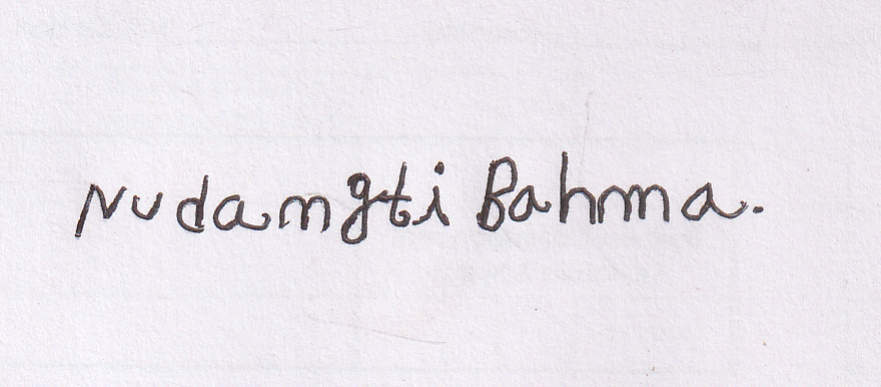 Nudangti Bahma.